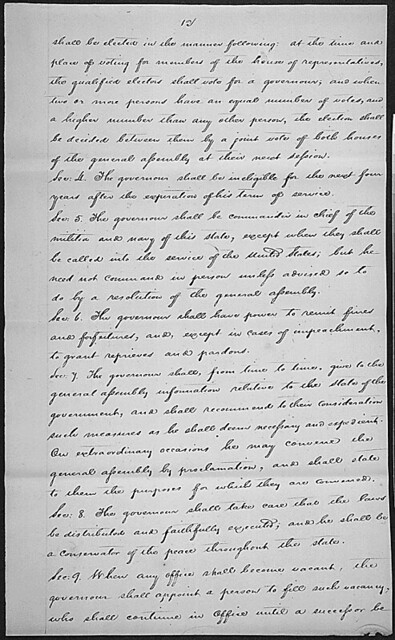 12/
shall be elected in the manner following: at the time and
place of voting for members of the house of representatives,
the qualified electors shall vote for a governour; and when
two or more persons have an equal number of votes, and
a higher number than any other person, the election shall
be decided between them by a joint vote of both houses
of the general assembly at their next session.
Sec: 4. The governour shall be ineligible for the next four
years after the expiration of his term of service.
Sec: 5. The governour shall be commander in chief of the
militia and navy of this state, except when they shall
be called into the service of the United States; but he
need not command in person unless advised so to
do by a resolution of the general assembly.
Sec: 6. The governour shall have power to remit fines
and forfeitures, and, except in cases of impeachment,
to grant reprieves and pardons.
Sec: 7. The governour shall, from time to time, give to the
general assembly information relative to the state of the
government, and shall recommend to their consideration
such measures as he shall deem necessary and expedient.
On extraordinary occasions he may convene the
general assembly by proclamation, and shall state
to them the purposes for which they are convened.
Sec: 8. The governour shall take care that the laws
be distributed and faithfully executed; and he shall be
a conservator of the peace throughout the state.
Sec: 9. When any office shall become vacant, the
governour shall appoint a person to fill such vacancy,
who shall continue in office until a successor be